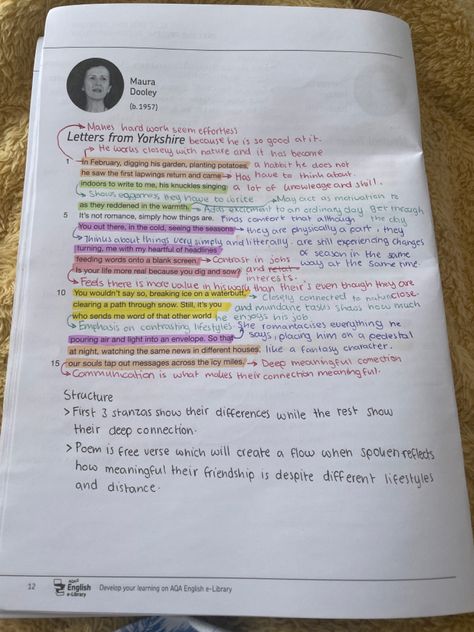 Maura
Dooley
(b. 1957)
→ Makes hard work seem effortless
Letters from Yorkshire because he is so good at it.
→ He works closely with nature and it has become
1 In February, digging his garden, planting potatoes, a habbit he does not
he saw the first lapwings return and came → Has to think about.
indoors to write to me, his knuckles singing a lot of knowledge and skill.
→ Shows eagerness they have to write → May act as motivation to
as they reddened in the warmth. → Adds excitement to an ordinary day get through
5 It's not romance, simply how things are. Finds comfort that although the day
You out there, in the cold, seeing the seasons → they are physically apart, they
→ Thinks about things very simply and litterally. are still experiencing changes
turning, me with my heartful of headlines of season in the same
feeding words onto a blank screen. → Contrast in jobs way at the same time.
Is your life more real because you dig and sow? and interests.
→ Feels there is more value in his work than their's even though they are
10 You wouldn't say so, breaking ice on a waterbutt, → Closely connected to nature close.
clearing a path through snow. Still, it's you and mundane tasks shows how much
who sends me word of that other world he enjoys his job
→ Emphasis on contrasting lifestyles. She romantacises everything he
pouring air and light into an envelope. So that says, placing him on a pedestal
at night, watching the same news in different houses, like a fantasy character.
15 our souls tap out messages across the icy miles. → Deep meaningful conection
→ Communication is what makes their connection meaningful.
Structure
> First 3 stanzas show their differences while the rest show
their deep connection.
> Poem is free verse which will create a flow when spoken-reflects
how meaningful their friendship is despite different lifestyles
and distance.
12 AQA English e-Library Develop your learning on AQA English e-Library